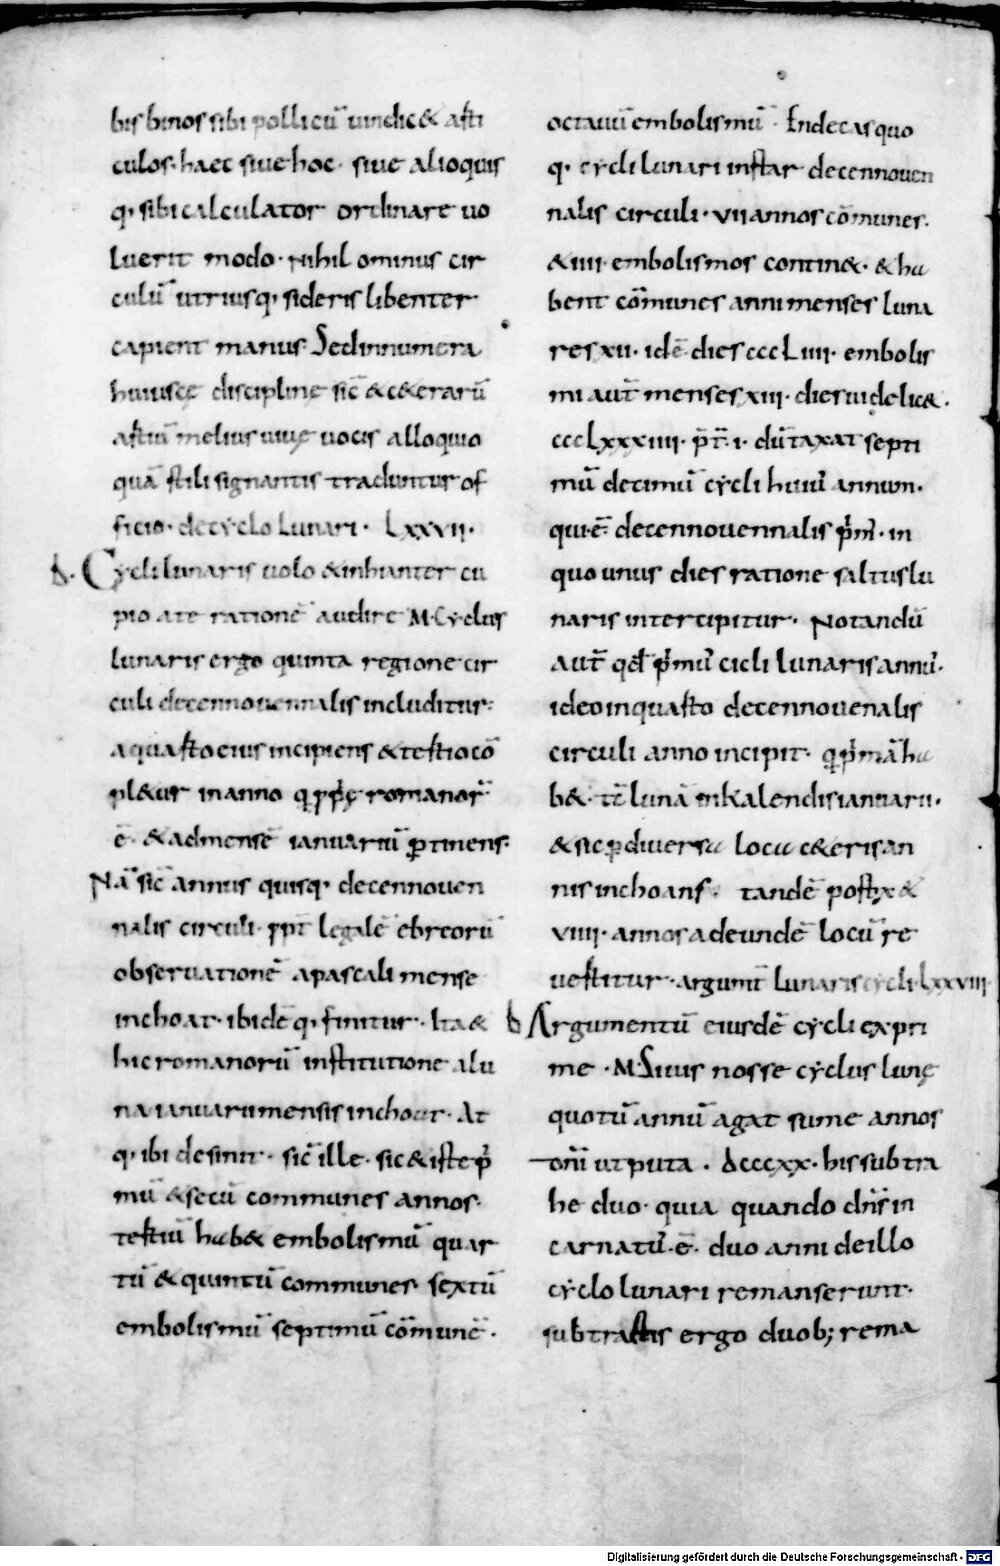 bis binos sibi pollicū uindic& asti
culos· haec siue hoc· siue alio quis
q· sibi calculator ordinare uo
luerit modo· Nihil ominus cir
culū utriusq· sideris libenter
capient manus· Sed innumera
huiuscę disciplinę sic̄ & c&erarū
astiū melius uiuę uocis alloquio
quā stili signantis traduntur of
ficio· de cyclo Lunari· Lxxvii·
d· Cycli lunaris uolo & inhianter cu
pio a te rationē audire M· Cyclus
lunaris ergo quinta regione cir
culi decennouennalis includitur·
a quasto eius incipiens & testio cō
pl&ur in anno
ē· & ad mensē ianuariū ꝑtinens·
Nā sic̄ annus quisq· decennouen
nalis circuli· ꝓpt̄ legalē ebreorū
obseruationē a pascali mense
inchoat· ibidē q· finitur· Ita &
hic romanorū institutione a lu
na ianuarii mensis inchoat· At
q· ibi desinit· sic̄ ille· sic & iste p̄
mū & secū communes annos·
testiū hab& embolismū quar
tū & quintū communes· sextū
embolismū septimū cōmunē·
octauū embolismū· Inde casquo
q· cycli lunari instar decennouen
nalis circuli· vii annos cōmunes·
& iiii· embolismos contin&· & ha
bent cōmunes anni menses luna
res xii· idē dies cccLiiii· embolis
mi aut̄ menses xiii· dies uidelic&·
cccLxxxiiii· p̄t̄· i· dūtaxat septi
mū decimū cycli huiū annum·
qui·ē· decennouennalis p̄m̄· in
quo unus dies ratione saltus lu
naris intercipitur· Notandū
aut̄ qđ p̄mū cicli lunaris annū·
ideo in quasto decennouenalis
circuli anno incipit· q p̄mā ha
b&· tc̄ lunā in Kalendis ianuarii·
& sic ꝑ diuersa loca c&eris an
nis inchoans· tandē post x &
viiii· annos ad eundē locū re
uestitur· argumt̄ lunaris cycli· Lxxviii·
d Argumentū eiusdē cycli expri
me· M· Si uis nosse cyclus lunę
quotū annū agat sume annos
dn̄i ut puta· dcccxx· his subtra
he duo· quia quando dn̄s in
carnatū·ē· duo anni de illo
cyclo lunari remanserunt·
subtrastis ergo duob; rema